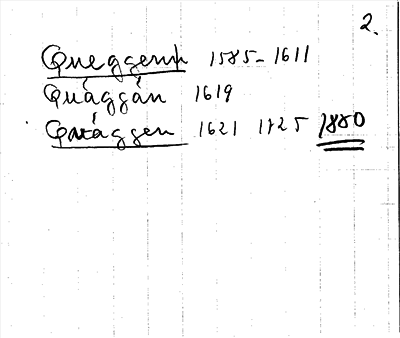 2.
Queggenn 1585-1611
Quággán 1619
Quággen 1621 1725 1880